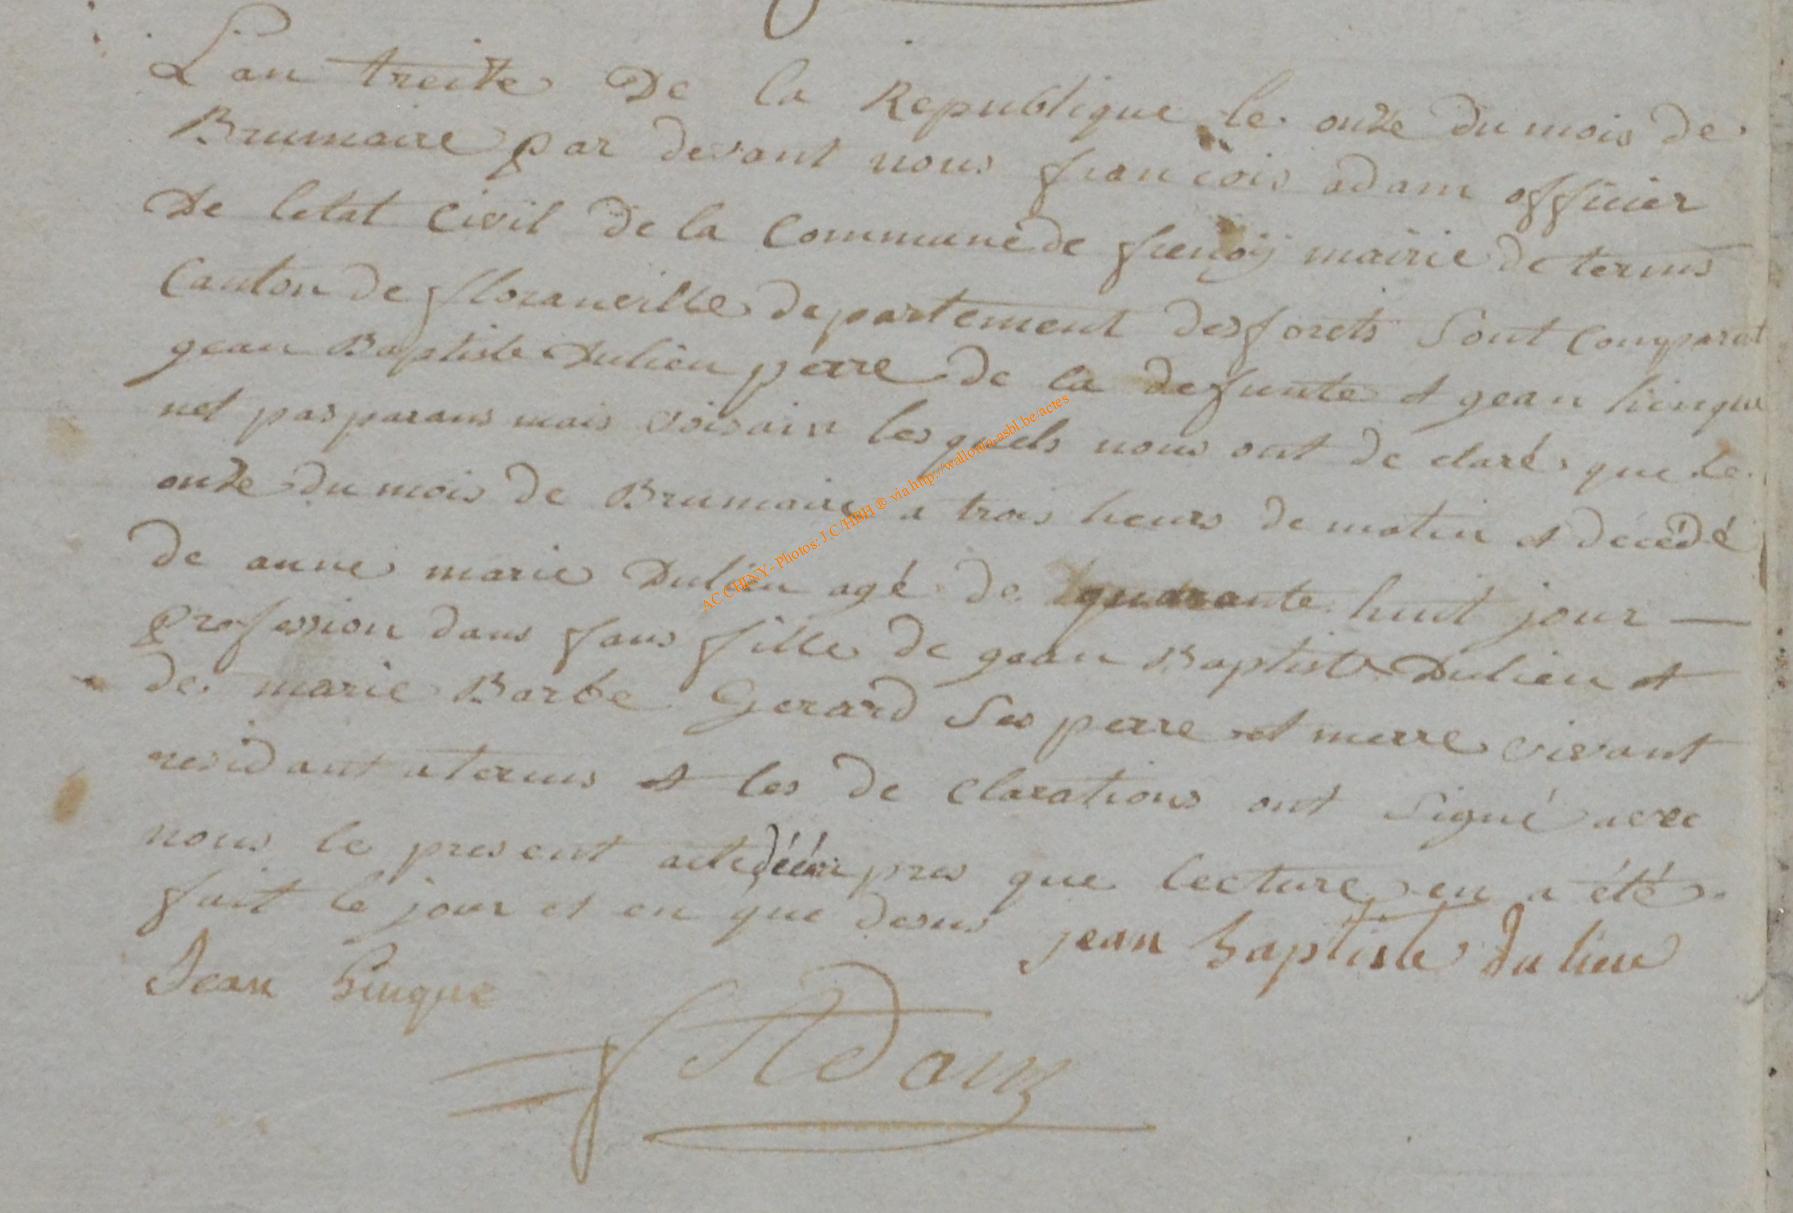 L'an treize De la Republique le onze Du mois de
Brumaire par devant nous françois adam officier
De letat Civil De la Commune de frenoy mairie De termes
Canton De floranville Departement des forets Sont Comparut
gean Baptiste Dulieu perre De la defunte et gean hinque
net pas parans mais voisain les quels nous ont De claré que Le
onze Du mois De Brumaire a trois heurs De matin et décédé
De anne marie Dulieu agé De quarante huit jour —
profession dans fans fille De gean Baptiste Dulieu et
De marie Barbe Gerard Ses perre et merre vivant
residant a termes et les De clarations ont Signé avec
nous le present acte pres que lecture en a été
fait le jour et en que desus jean baptiste dulieu
Jean hinque
f Adam
AC CHINY - Photos: J.C /HBH ® via http://wallonia-asbl.be/actes